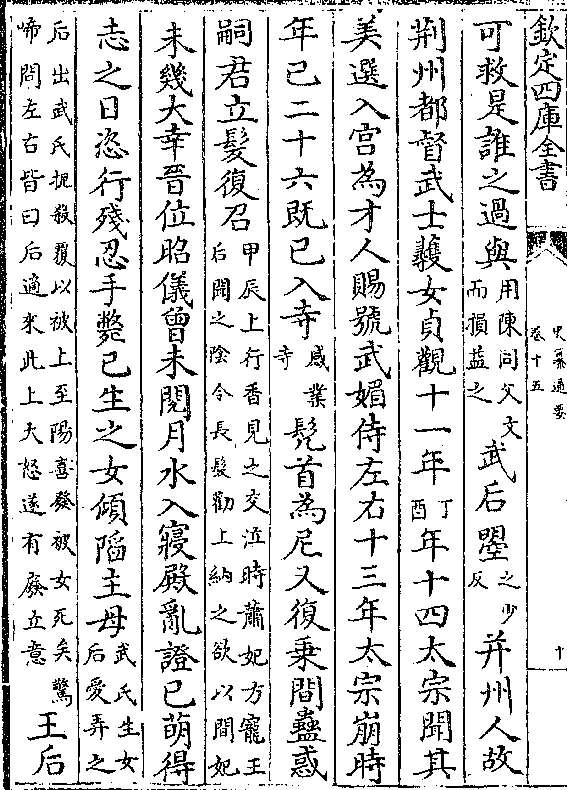 欽定四庫全書
史纂通要
卷十五
十
可救是誰之過與用陳同父文而損益之武后曌之少反并州人故
荆州都督武士彠女貞觀十一年丁酉年十四太宗聞其
美選入宫為才人賜號武媚侍左右十三年太宗崩時
年已二十六既已入寺感業寺髠首為尼又復乗間蠱惑
嗣君立髮復召甲辰上行香見之交泣時蕭妃方寵王后聞之陰令長髮勸上納之欲以間妃
未幾大幸晉位昭儀曾未閱月水入寢殿亂證已萌得
志之日恣行殘忍手斃已生之女傾䧟主母武氏生女后愛弄之
后出武氏扼殺覆以被上至陽喜發被女死矣驚啼問左右皆曰后適來此上大怒遂有廢立意王后